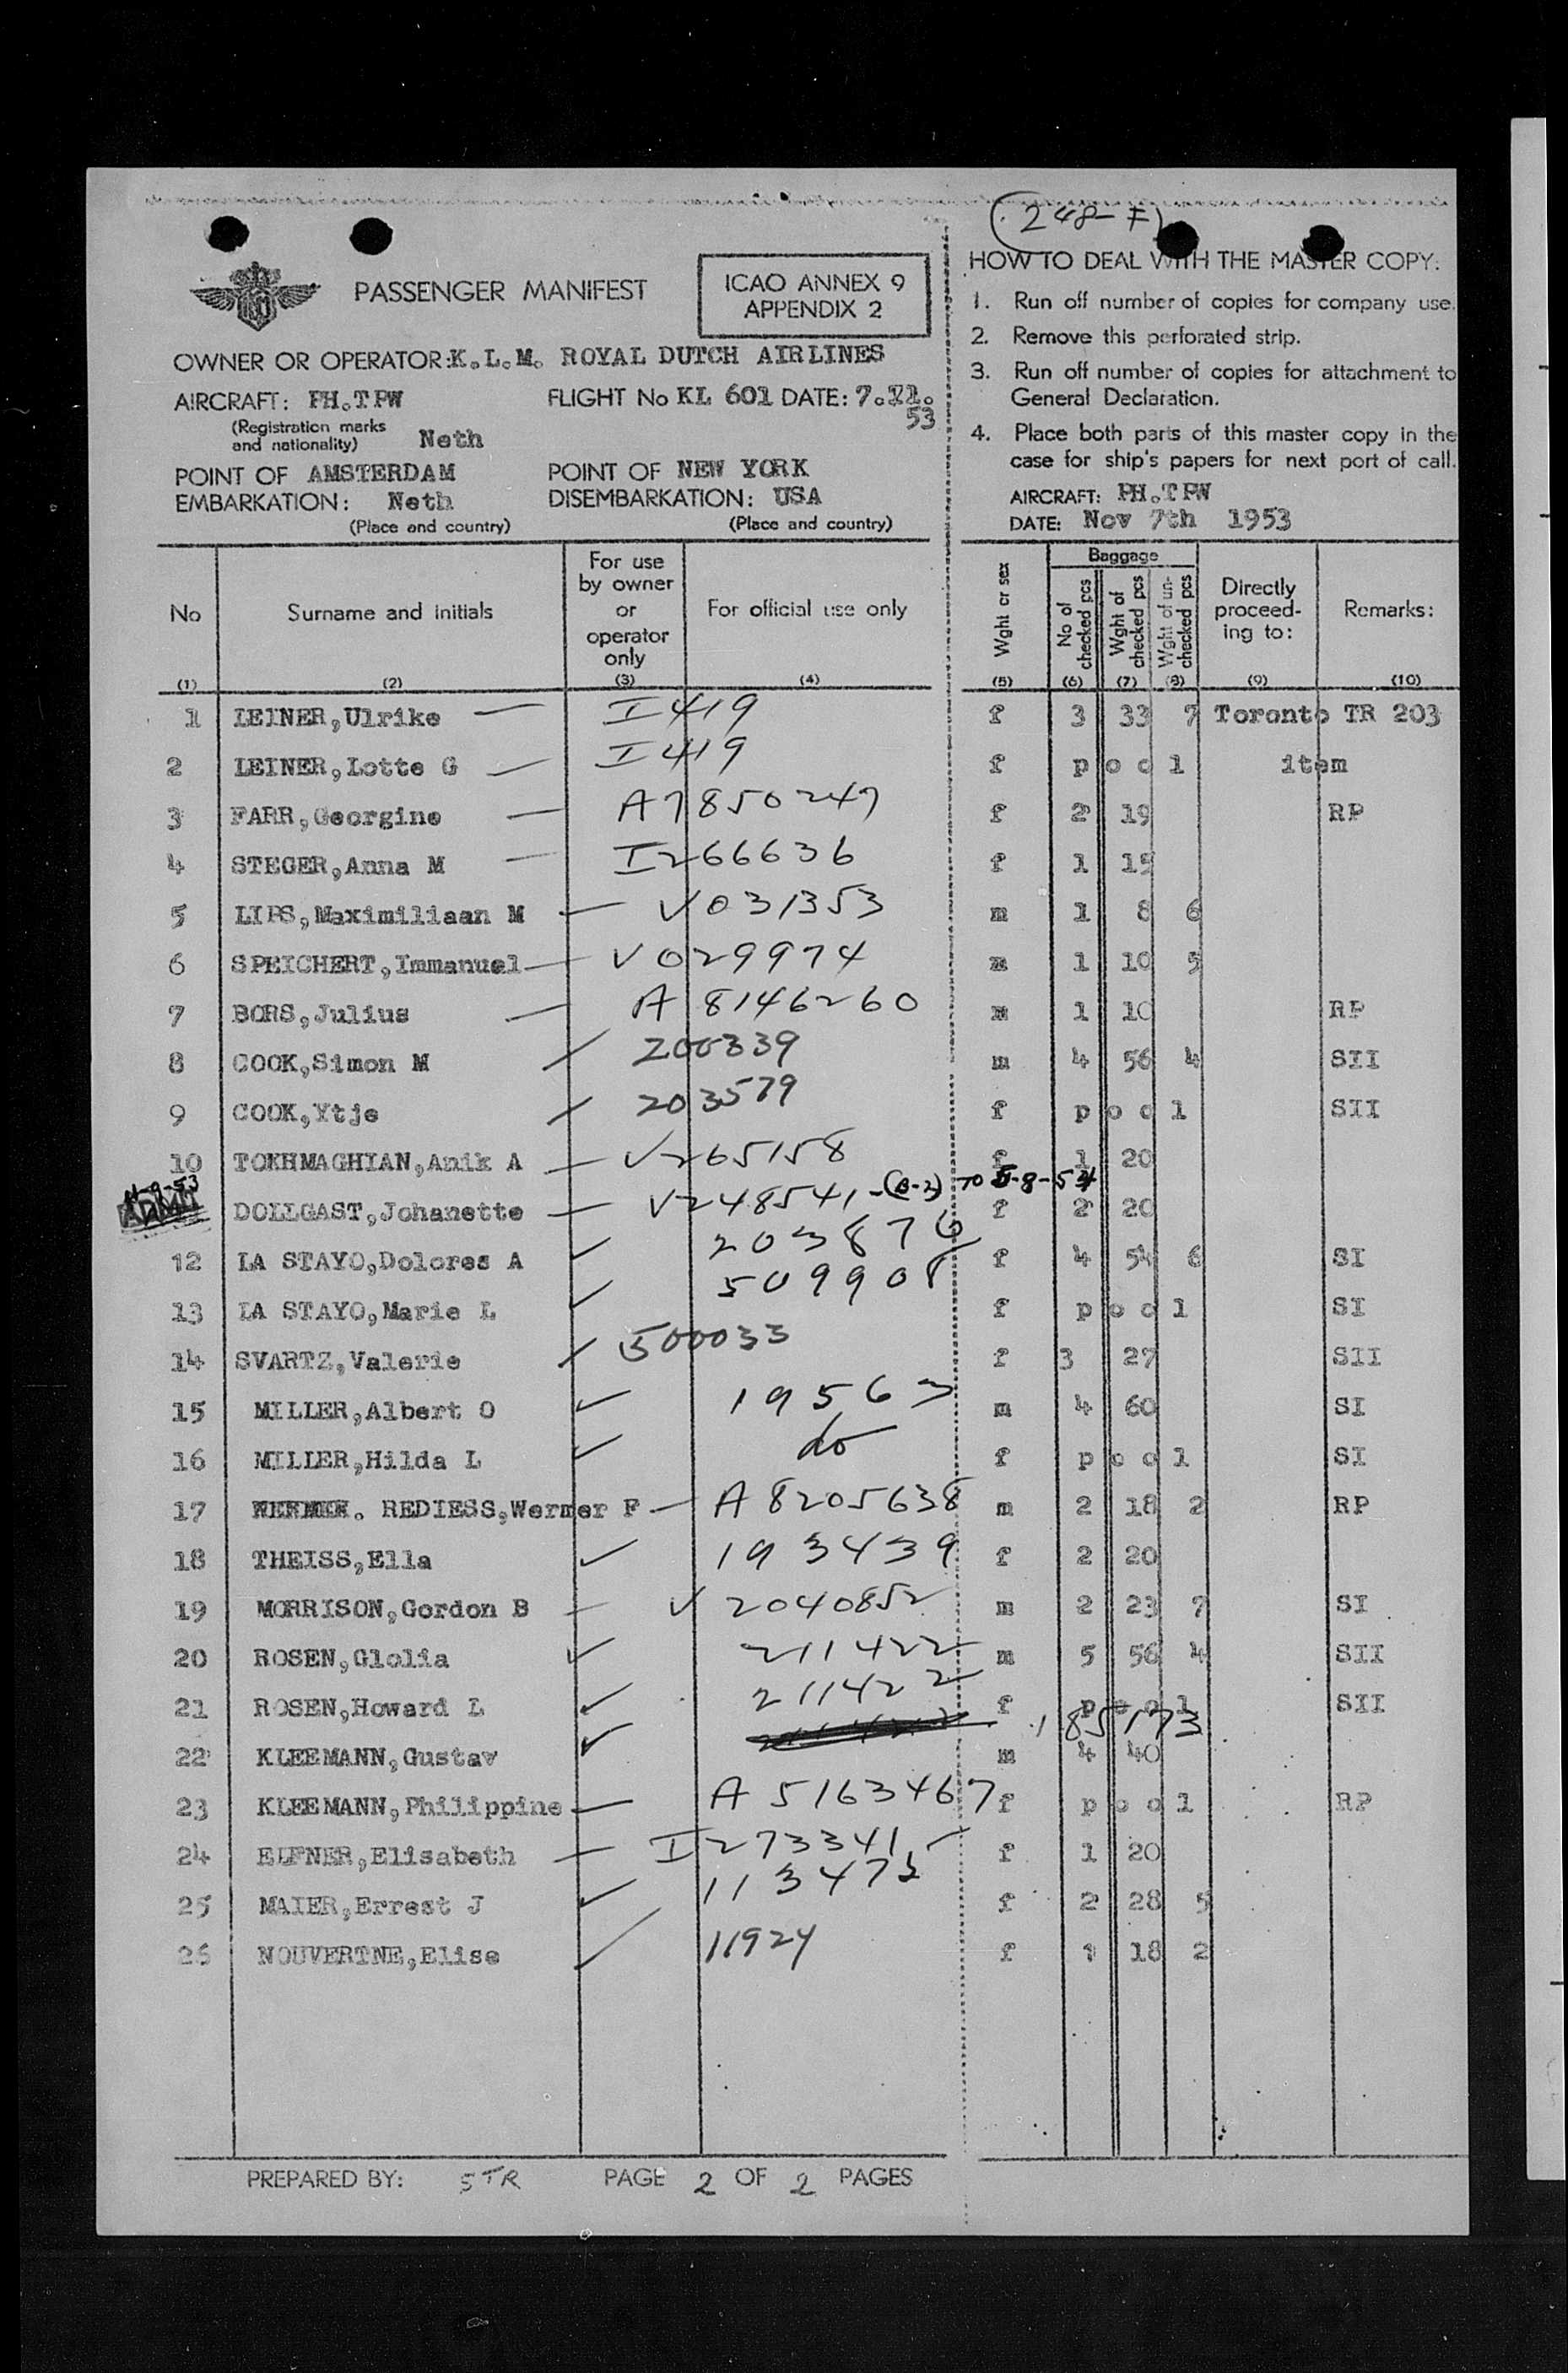 (248-F)
PASSENGER MANIFEST
ICAO ANNEX 9
APPENDIX 2
OWNER OR OPERATOR: K.L.M. ROYAL DUTCH AIRLINES
AIRCRAFT: PH.TPW FLIGHT No KL 601 DATE: 7.11.
53
(Registration marks
and nationality) Neth
POINT OF AMSTERDAM POINT OF NEW YORK
EMBARKATION: Neth DISEMBARKATION: USA
(Place and country) (Place and country)
HOW TO DEAL WITH THE MASTER COPY:
1. Run off number of copies for company use.
2. Remove this perforated strip.
3. Run off number of copies for attachment to
General Declaration.
4. Place both parts of this master copy in the
case for ship's papers for next port of call.
AIRCRAFT: PH.TPW
DATE: Nov 7th 1953
No
Surname and initials
For use
by owner
or
operator
only
For official use only
Wght or sex
Baggage
No of
checked pcs
Wght of
checked pcs
Wght of un-
checked pcs
Directly
proceed-
ing to:
Remarks:
(1) (2) (3) (4) (5) (6) (7) (8) (9) (10)
1 LEINER,Ulrike I419 f 3 33 7 Toronto TR 203
2 LEINER,Lotte G I419 f pool item
3 FARR,Georgine A7850247 f 2 19 RP
4 STEGER,Anna M I266636 f 1 15
5 LIPS,Maximiliaan M V031353 m 1 8 6
6 SPEICHERT,Immanuel V029974 m 1 10 5
7 BORS,Julius A8146260 m 1 10 RP
8 COOK,Simon M 200339 m 4 56 4 SII
9 COOK,Ytje 203579 f pool SII
10 TOKHMAGHIAN,Anik A V265158 f 1 20
11-9-53
ADMIT DOLLGAST,Johanette V248541-(B-2) TO 5-8-54 f 2 20
12 LA STAYO,Dolores A 203876 f 4 54 6 SI
13 LA STAYO,Marie L 509908 f pool SI
14 SVARTZ,Valerie 500033 f 3 27 SII
15 MILLER,Albert O 19563 m 4 60 SI
16 MILLER,Hilda L do f pool SI
17 REDIESS,Werner F A8205638 m 2 18 2 RP
18 THEISS,Ella 193439 f 2 20
19 MORRISON,Gordon B V2040852 m 2 23 7 SI
20 ROSEN,Glolia 211422 m 5 56 4 SII
21 ROSEN,Howard L 211422 f pool SII
22 KLEEMANN,Gustav 185173 m 4 40
23 KLEEMANN,Philippine A5163467 f pool RP
24 ELFNER,Elisabeth I273341 f 1 20
25 MAIER,Errest J 113473 f 2 28 5
26 NOUVERTNE,Elise 11924 f 1 18 2
PREPARED BY: STR PAGE 2 OF 2 PAGES